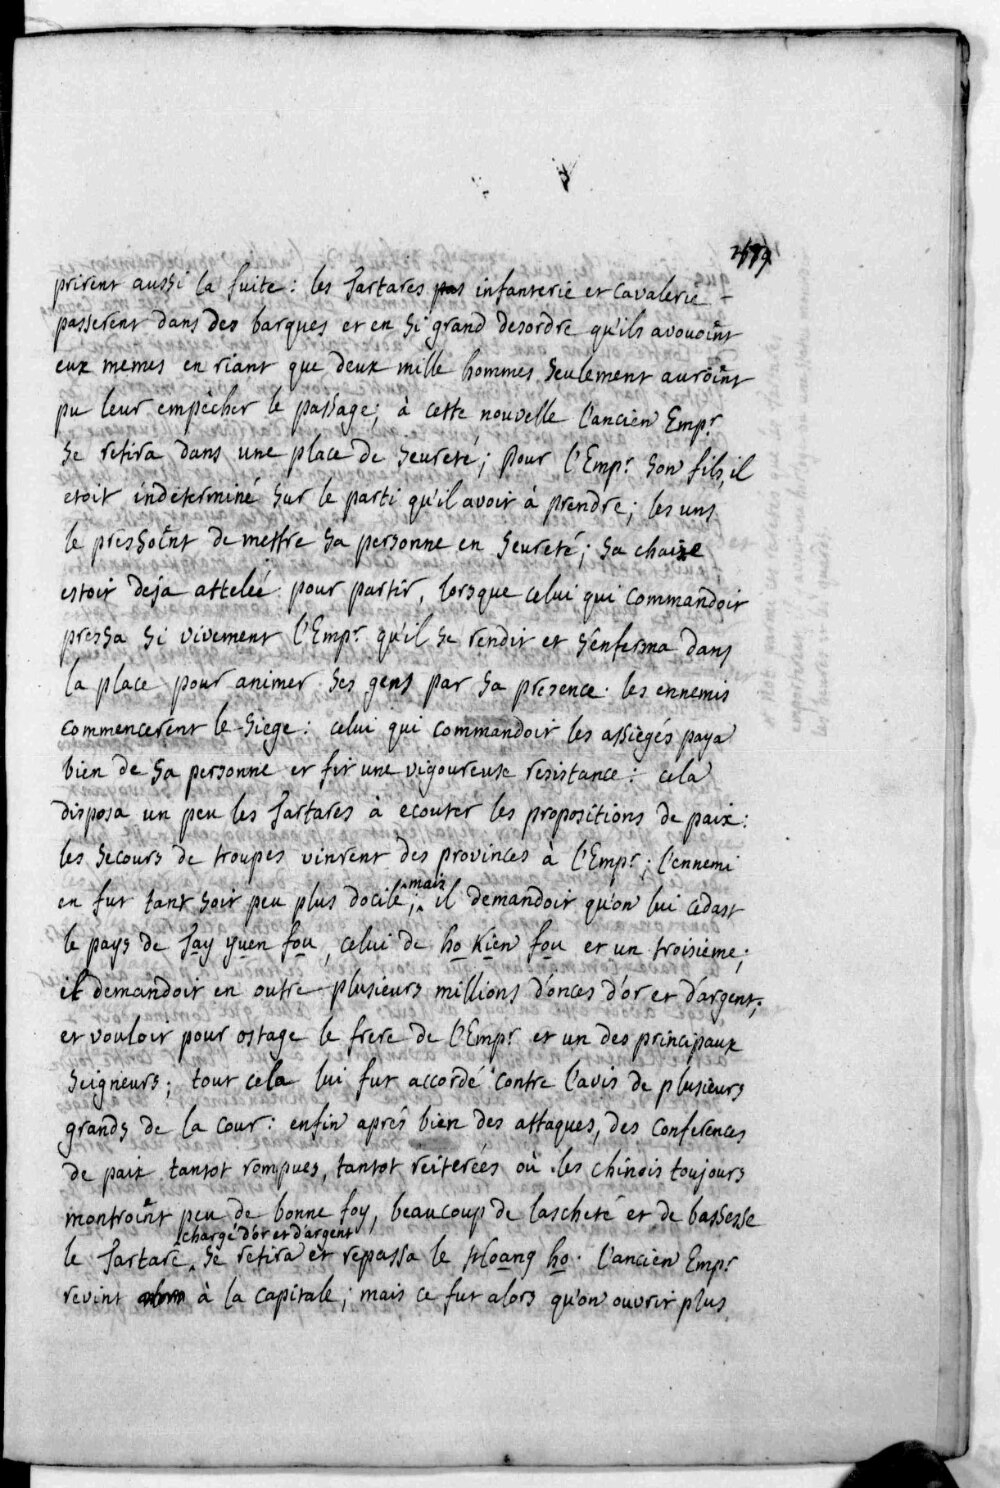 prirent aussi la fuite : les Tartares infanterie et cavalerie -
passerent dans des barques et en si grand desordre qu'ils avouoient
eux memes en riant que deux mille hommes seulement auroient
pu leur empêcher le passage; à cette nouvelle l'ancien Empr
se retira dans une place de seureté; pour l'Empr son fils, il
etoit indeterminé sur le parti qu'il avoit à prendre; les uns
le pressoient de mettre sa personne en seureté; sa chaize
estoit deja attelée pour partir, lorsque celui qui commandoit
pressa si vivement l'Empr qu'il se rendit et s'enferma dans
la place pour animer ses gens par sa presence. les ennemis
commencerent le siege : celui qui commandoit les assiegés paya
bien de sa personne et fit une vigoureuse resistance : cela
disposa un peu les Tartares à ecouter les propositions de paix :
les secours de troupes vinrent des provinces à l'Empr; l'ennemi
en fut tant soit peu plus docile; mais il demandoit qu'on lui cedast
le pays de Tay yuen fou, celui de ho Kien fou et un troisieme;
il demandoit en outre plusieurs millions d'onces d'or et d'argent,
et vouloit pour ostage le frere de l'Empr et un des principaux
seigneurs; tout cela lui fut accordé contre l'avis de plusieurs
grands de la cour : enfin aprés bien des attaques, des conferences
de paix tantot rompues, tantot reiterées où les chinois toujours
montroient peu de bonne foy, beaucoup de lascheté et de bassesse
le Tartare chargé d'or et d'argent se retira et repassa le Hoang ho. l'ancien Empr
revint à la capitale; mais ce fut alors qu'on ouvrit plus